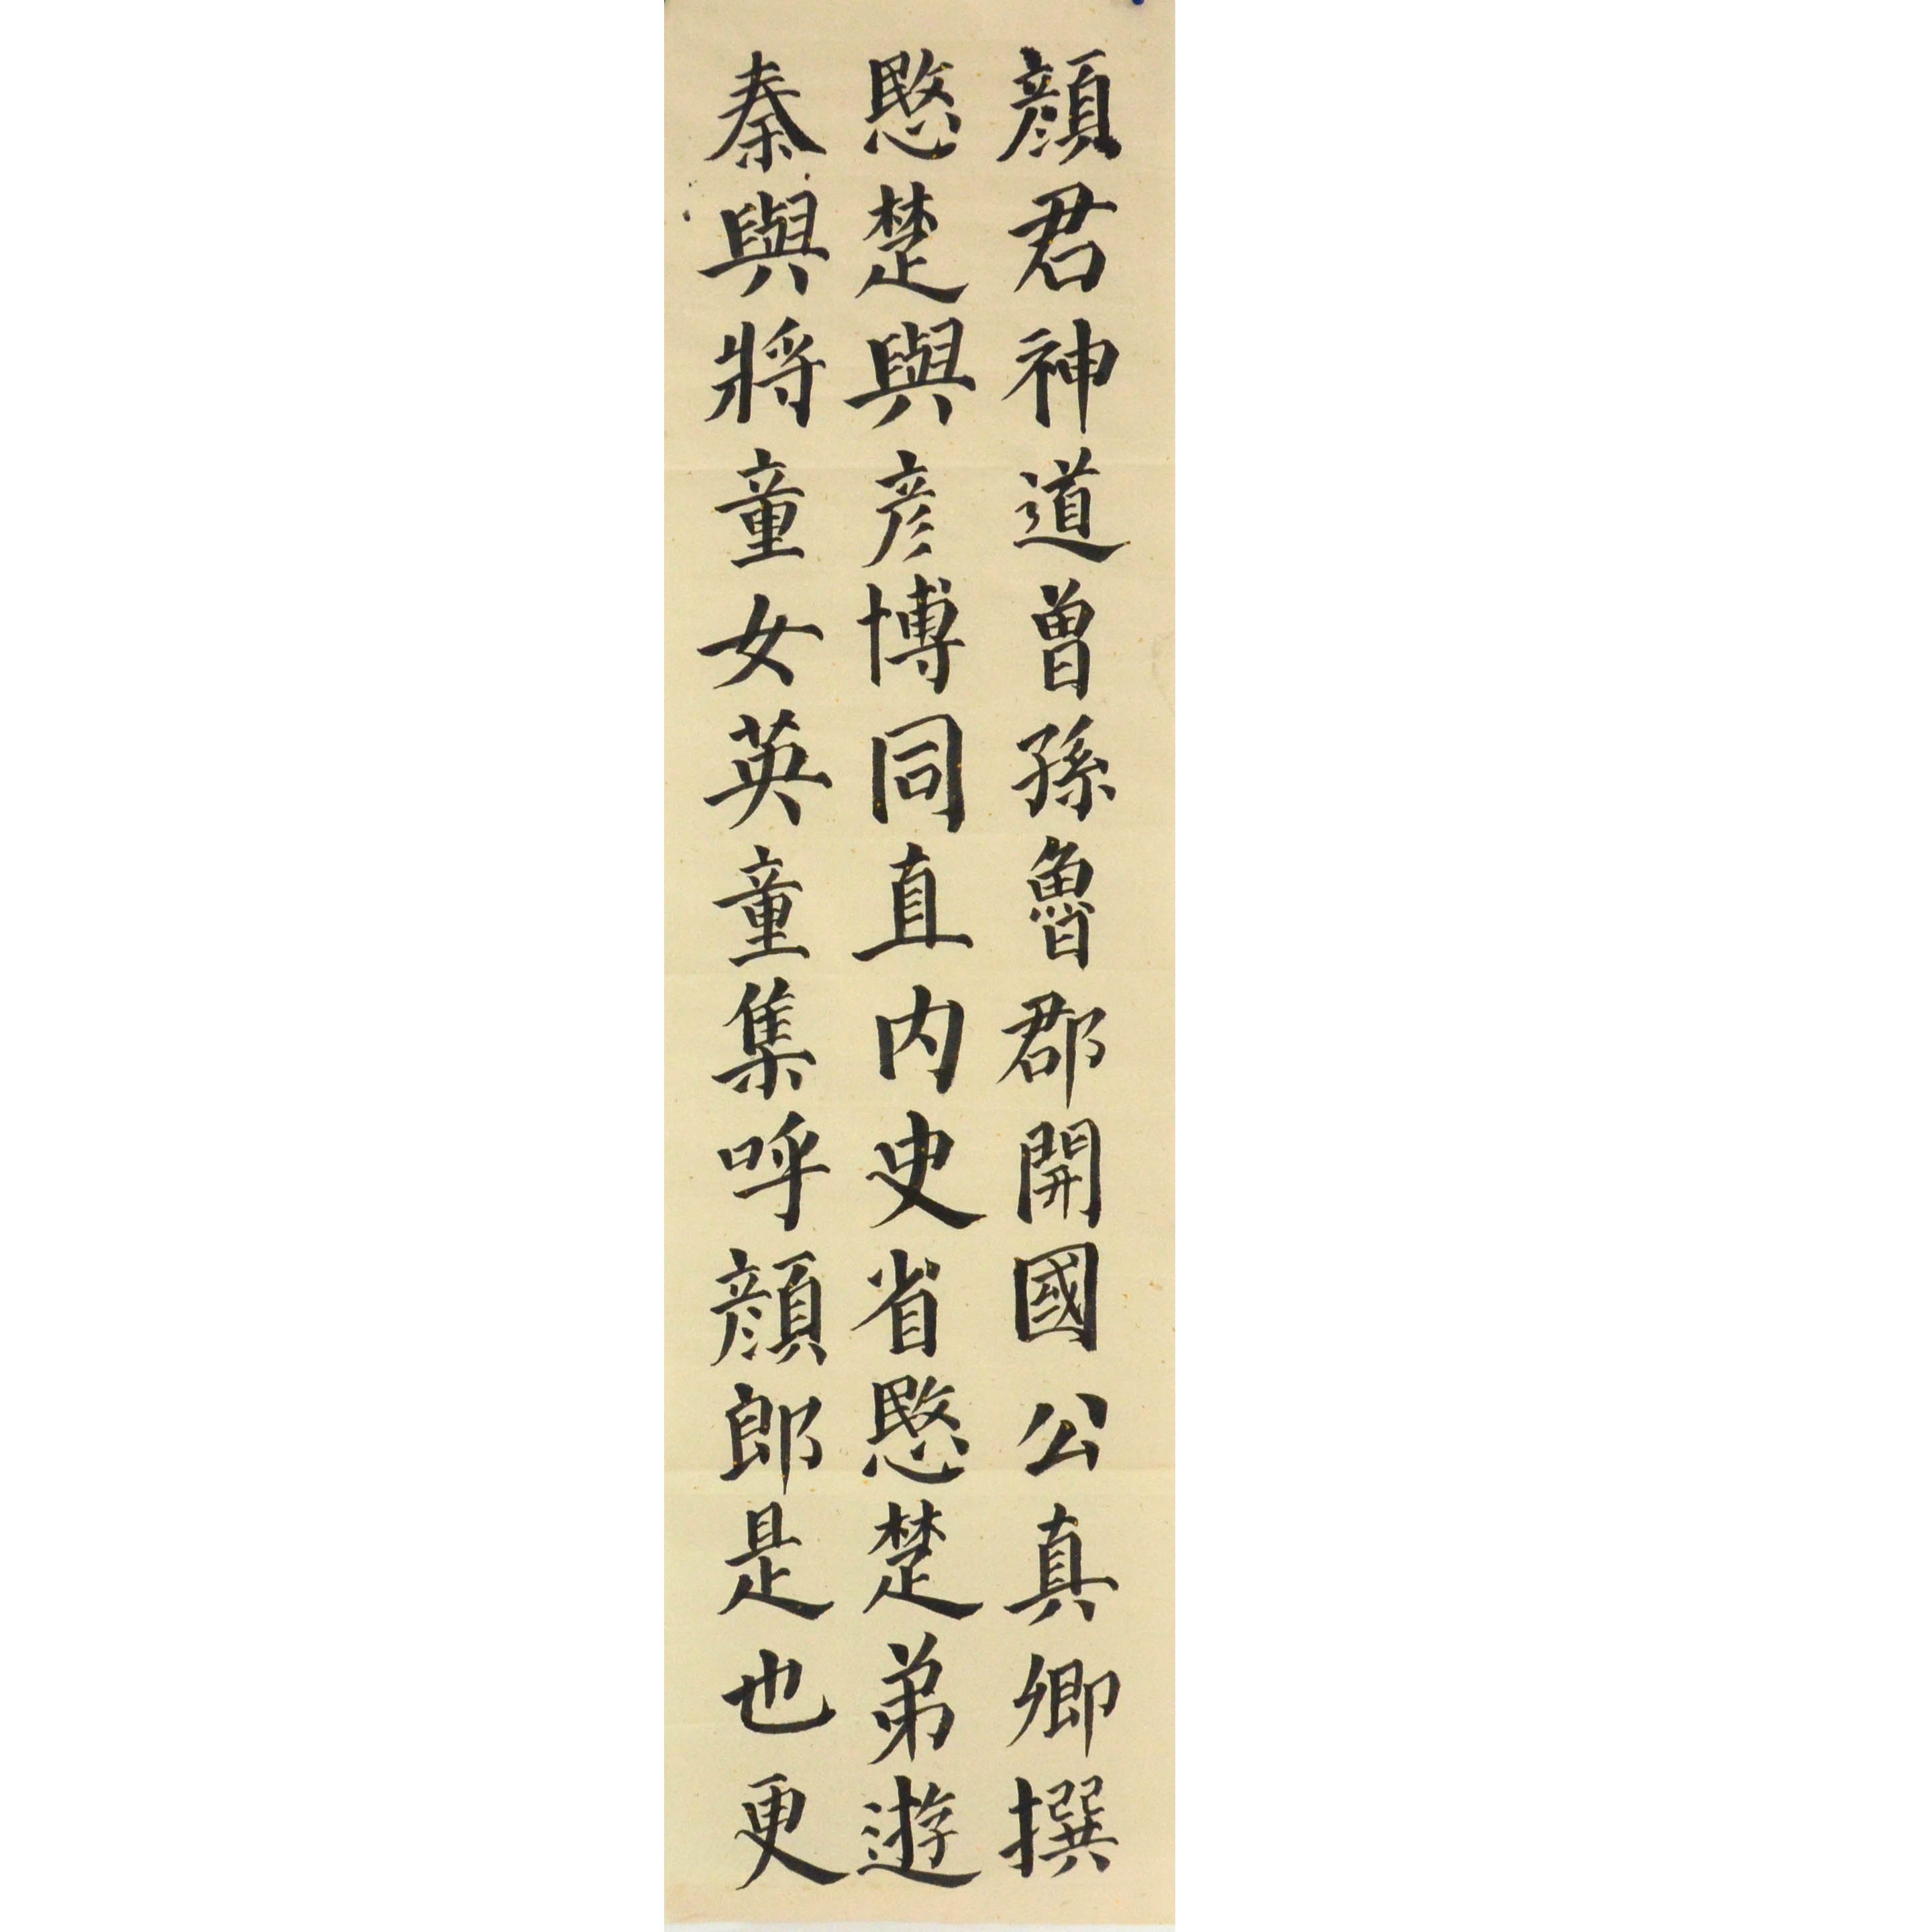 顏君神道曾孫魯郡開國公真卿撰
愍楚與彥博同直內史省愍楚弟遊
秦與將童女英童集呼顏郎是也更